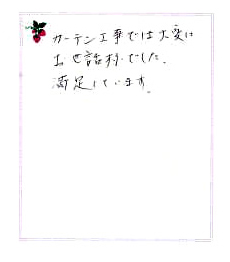 カーテン工事では大変に
お世話様でした。
満足しています。